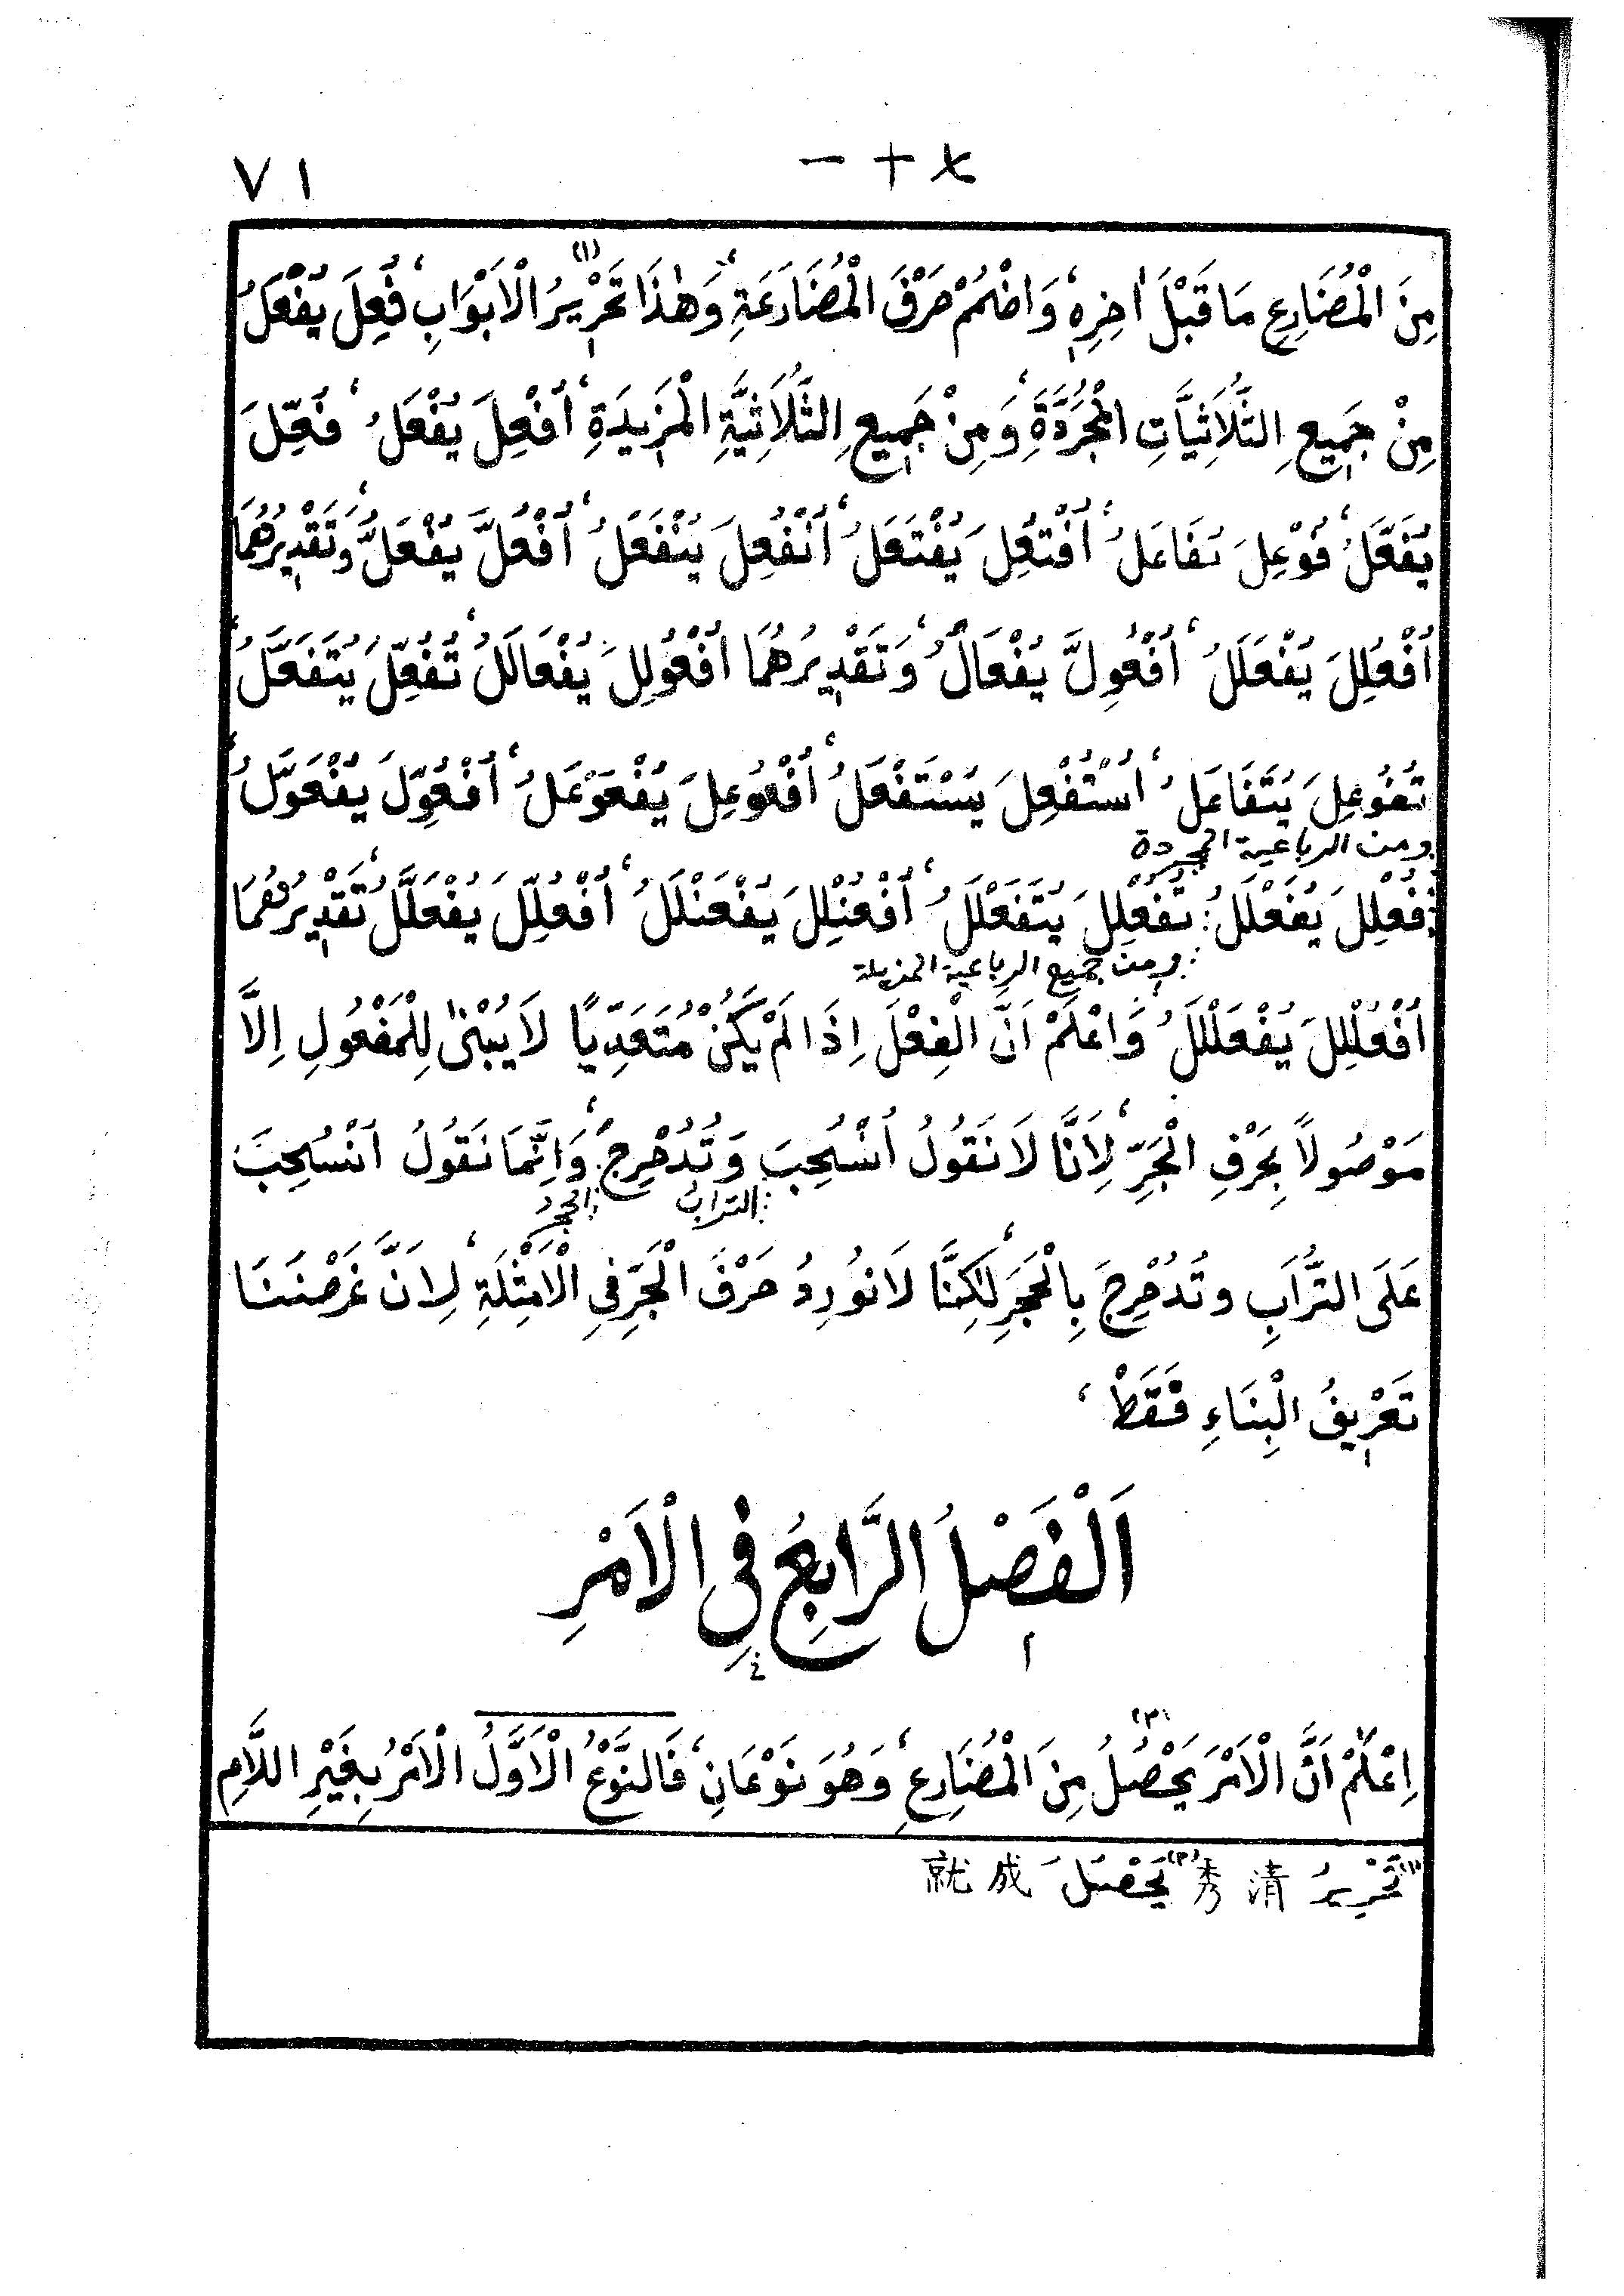 ٧١
مِنَ الْمُضَارِعِ مَا قَبْلَ اٰخِرِهِ، وَاضْمُمْ حَرْفَ الْمُضَارَعَةِ، وَهٰذَا تَحْرِيْرُ (١) الْاَبْوَابِ، فُعِلَ يُفْعَلُ
مِنْ جَمِيعِ الثُّلَاثِيَّاتِ الْمُجَرَّدَةِ، وَمِنْ جَمِيعِ الثُّلَاثِيَّةِ الْمَزِيدَةِ، اُفْعِلَ يُفْعَلُ، فُعِّلَ
يُفَعَّلُ، فُوْعِلَ يُفَاعَلُ، اُفْتُعِلَ يُفْتَعَلُ، اُنْفُعِلَ يُنْفَعَلُ، اُفْعُلَّ يُفْعَلُّ، وَتَقْدِيرُهُمَا
اُفْعُلِلَ يُفْعَلَلُ، اُفْعُولَّ يُفْعَالُّ، وَتَقْدِيرُهُمَا اُفْعُولِلَ يُفْعَالَلُ، تُفُعِّلَ يُتَفَعَّلُ،
تُفُوعِلَ يُتَفَاعَلُ، اُسْتُفْعِلَ يُسْتَفْعَلُ، اُفْعُوعِلَ يُفْعَوْعَلُ، اُفْعُوِّلَ يُفْعَوَّلُ،
ومن الرباعية المجردة
فُعْلِلَ يُفَعْلَلُ: تُفُعْلِلَ يُتَفَعْلَلُ، اُفْعُنْلِلَ يُفْعَنْلَلُ، اُفْعُلِّلَ يُفْعَلَّلُ، تَقْدِيرُهُمَا
ومن جميع الرباعية المزيدة
اُفْعُلْلِلَ يُفْعَلْلَلُ، وَاعْلَمْ اَنَّ الْفِعْلَ اِذَا لَمْ يَكُنْ مُتَعَدِّيًا لَا يُبْنٰى لِلْمَفْعُولِ اِلَّا
مَوْصُولاً بِحَرْفِ الْجَرِّ، لِاَنَّا لَا نَقُولُ اُنْسُحِبَ وَتُدُحْرِجَ، وَاِنَّمَا نَقُولُ اُنْسُحِبَ
التراب الحجر
عَلَى التُّرَابِ وَتُدُحْرِجَ بِالْحَجَرِ، لٰكِنَّا لَا نُورِدُ حَرْفَ الْجَرِّ فِي الْاَمْثِلَةِ، لِاَنَّ غَرَضَنَا
تَعْرِيفُ الْبِنَاءِ فَقَطْ،
اَلْفَصْلُ الرَّابِعُ فِى الْاَمْرِ
اِعْلَمْ اَنَّ الْاَمْرَ يَحْصُلُ (٢) مِنَ الْمُضَارِعِ، وَهُوَ نَوْعَانِ، فَالنَّوْعُ الْاَوَّلُ الْاَمْرُ بِغَيْرِ اللَّامِ
(١) تَحْرِيرُ 清 秀 (٢) يَحْصُلُ 成 就